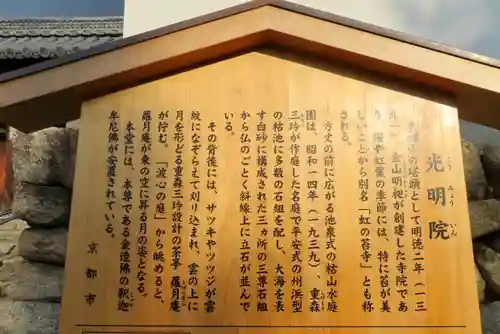 光明院
こうみょういん
塔頭として明徳二年(一三
金山明昶が創建した寺院であ
紅葉の季節には、特に苔が美
しいことから別名「虹の苔寺」とも称
される。
方丈の前に広がる池泉式の枯山水庭
園は、昭和一四年(一九三九)、重森
三玲が作庭した名庭で平安式の州浜型
の枯池に多数の石組を配し、大海を表
す白砂に構成された三ヵ所の三尊石組
から仏のごとく斜線上に立石が並んで
いる。
その背後には、サツキやツツジが雲
紋になぞらえて刈り込まれ、雲の上に
月を形どる重森三玲設計の茶亭 蘿月庵
が佇む。「波心の庭」から眺めると、
蘿月庵が東の空に昇る月の姿となる。
本堂には、本尊である金造佛の釈迦
牟尼佛が安置されている。
京都市